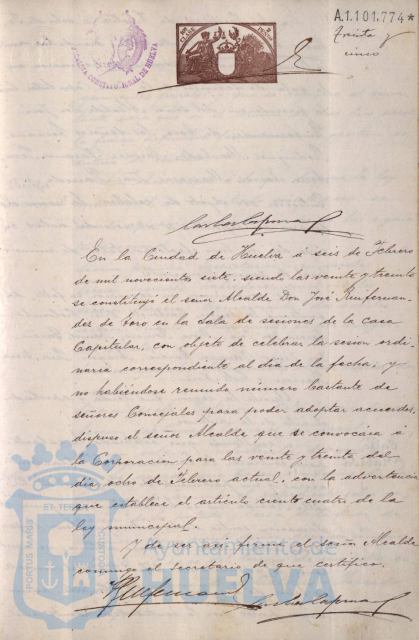 ALCALDIA CONSTITUCIONAL DE HUELVA
A.1.101.774*
Treinta y
cinco
En la Ciudad de Huelva á seis de Febrero
de mil novecientos siete, siendo las veinte y treinta
se constituyó el señor Alcalde Don José Ruifernan-
dez de Toro en la Sala de sesiones de la casa
Capitular, con objeto de celebrar la sesion ordi-
naria correspondiente al dia de la fecha, y
no habiéndose reunido número bastante de
señores Concejales para poder adoptar acuerdos,
dispuso el señor Alcalde que se convocára á
la Corporacion para las veinte y treinta del
dia ocho de Febrero actual, con la advertencia
que establece el artículo ciento cuatro de la
ley municipal.
Y de ser así firma el señor Alcalde
conmigo el Secretario de que certifico.
PORTUS MARIS
ET TERRAE
CUSTODIA
Ayuntamiento de
HUELVA